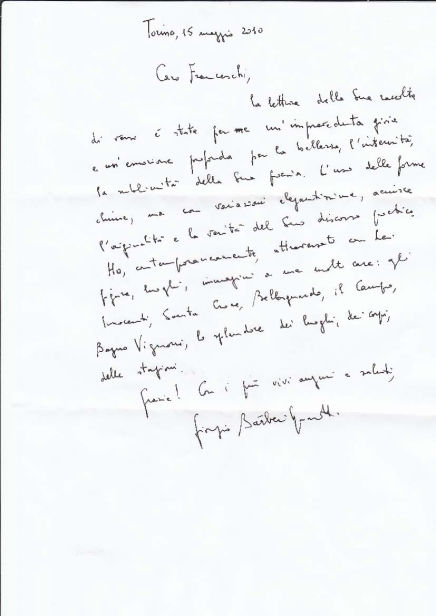 Torino, 15 maggio 2010
Caro Franceschi,
la lettura della Sua raccolta
di versi è stata per me un'impreceduta gioia
e un'emozione profonda per la bellezza, l'intensità,
la sublimità della Sua poesia. L'uso delle forme
chiuse, ma con variazioni elegantissime, acuisce
l'originalità e la verità del Suo discorso poetico.
Ho, contemporaneamente, attraversato con Lei
figure, luoghi, immagini a me molto care: gli
Innocenti, Santa Croce, Bellosguardo, il Campo,
Bagno Vignoni, lo splendore dei luoghi, dei corpi,
delle stagioni.
Grazie! Con i più vivi auguri e saluti,
Giorgio Bàrberi Squarotti.